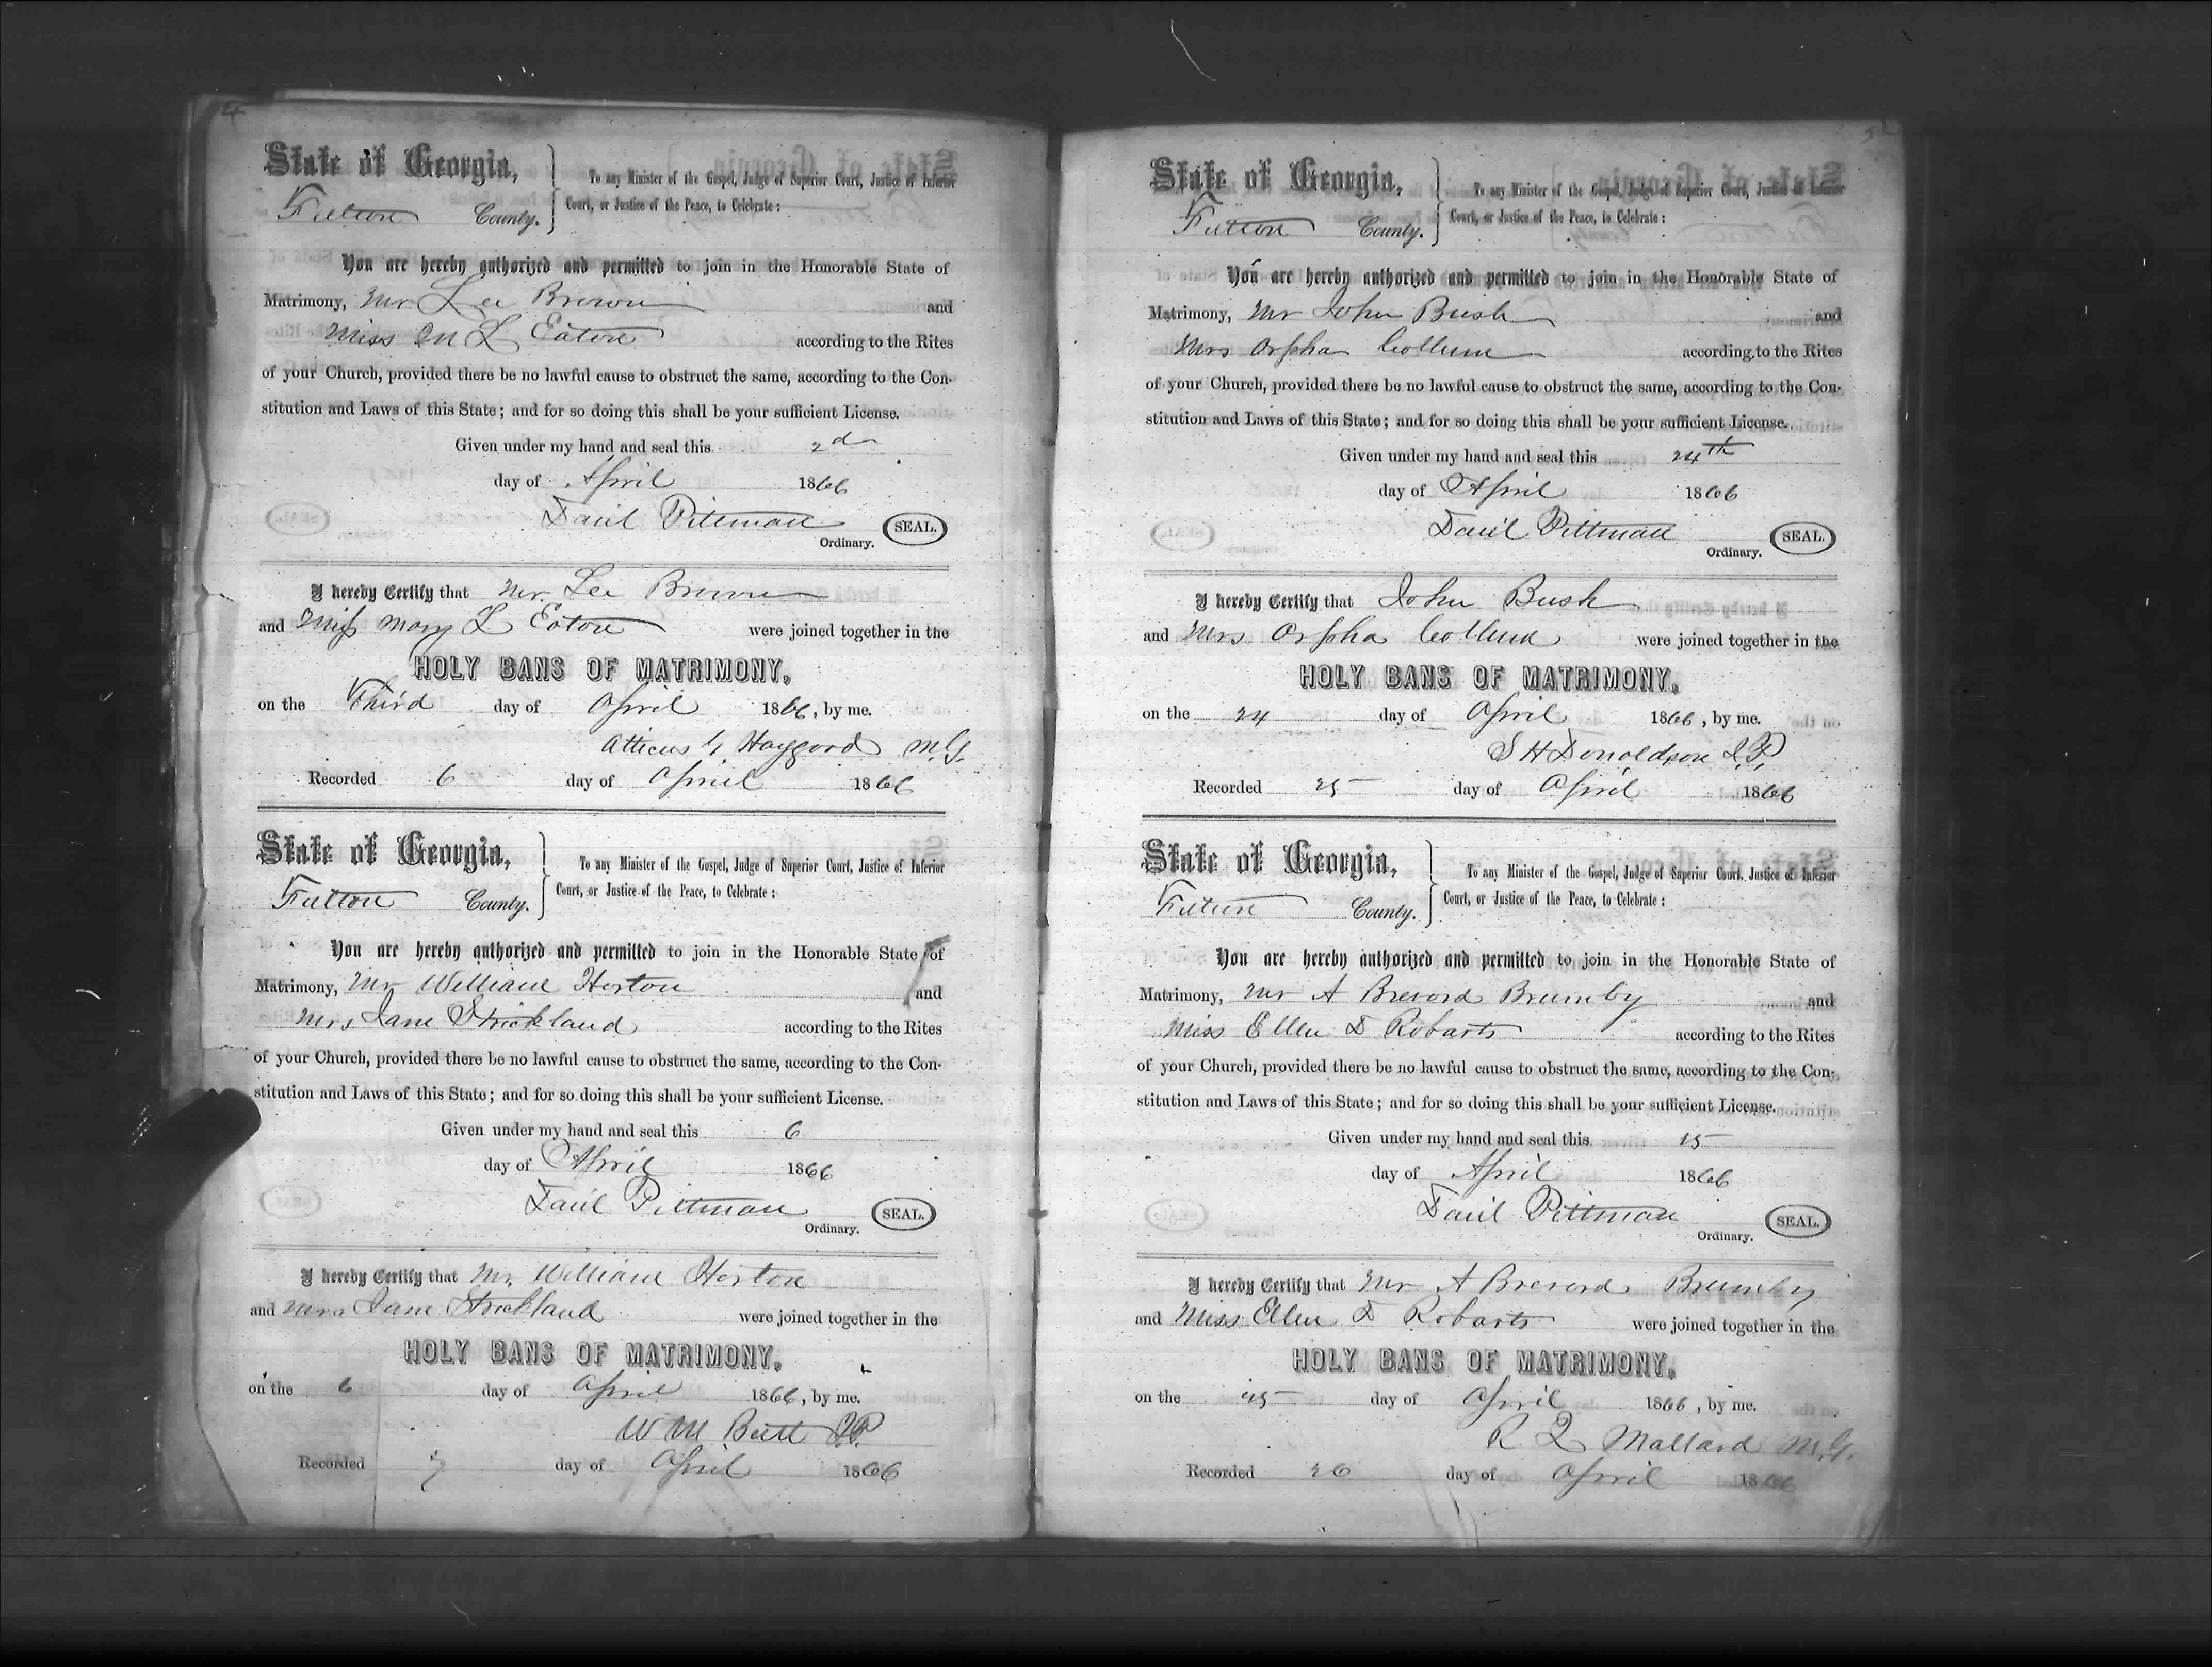 4
State of Georgia,
Fulton County.
To any Minister of the Gospel, Judge of Superior Court, Justice of Inferior
Court, or Justice of the Peace, to Celebrate:
You are hereby authorized and permitted to join in the Honorable State of
Matrimony, Mr Lee Brown and
Miss M L Eaton according to the Rites
of your Church, provided there be no lawful cause to obstruct the same, according to the Con-
stitution and Laws of this State; and for so doing this shall be your sufficient License.
Given under my hand and seal this 2d
day of April 1866
Danl Pittman SEAL.
Ordinary.
I hereby Certify that Mr. Lee Brown
and Miss Mary L Eaton were joined together in the
HOLY BANS OF MATRIMONY,
on the Third day of April 1866, by me.
Atticus G Haygood M.G.
Recorded 6 day of April 1866
State of Georgia,
Fulton County.
To any Minister of the Gospel, Judge of Superior Court, Justice of Inferior
Court, or Justice of the Peace, to Celebrate:
You are hereby authorized and permitted to join in the Honorable State of
Matrimony, Mr William Horton and
Mrs Jane Strickland according to the Rites
of your Church, provided there be no lawful cause to obstruct the same, according to the Con-
stitution and Laws of this State; and for so doing this shall be your sufficient License.
Given under my hand and seal this 6
day of April 1866
Danl Pittman SEAL.
Ordinary.
I hereby Certify that Mr. William Horton
and Mrs Jane Strickland were joined together in the
HOLY BANS OF MATRIMONY,
on the 6 day of April 1866, by me.
W M Butt J.P.
Recorded 7 day of April 1866
5
State of Georgia,
Fulton County.
To any Minister of the Gospel, Judge of Superior Court, Justice of Inferior
Court, or Justice of the Peace, to Celebrate:
You are hereby authorized and permitted to join in the Honorable State of
Matrimony, Mr John Bush and
Mrs Orpha Collum according to the Rites
of your Church, provided there be no lawful cause to obstruct the same, according to the Con-
stitution and Laws of this State; and for so doing this shall be your sufficient License.
Given under my hand and seal this 24th
day of April 1866
Danl Pittman SEAL.
Ordinary.
I hereby Certify that John Bush
and Mrs Orpha Collum were joined together in the
HOLY BANS OF MATRIMONY,
on the 24 day of April 1866, by me.
S H Donaldson J.P.
Recorded 25 day of April 1866
State of Georgia,
Fulton County.
To any Minister of the Gospel, Judge of Superior Court, Justice of Inferior
Court, or Justice of the Peace, to Celebrate:
You are hereby authorized and permitted to join in the Honorable State of
Matrimony, Mr A Brevord Brumby and
Miss Ellen D Robarts according to the Rites
of your Church, provided there be no lawful cause to obstruct the same, according to the Con-
stitution and Laws of this State; and for so doing this shall be your sufficient License.
Given under my hand and seal this 25
day of April 1866
Danl Pittman SEAL.
Ordinary.
I hereby Certify that Mr A Brevord Brumby
and Miss Ellen D Robarts were joined together in the
HOLY BANS OF MATRIMONY,
on the 25 day of April 1866, by me.
R Q Mallard M.G.
Recorded 26 day of April 1866